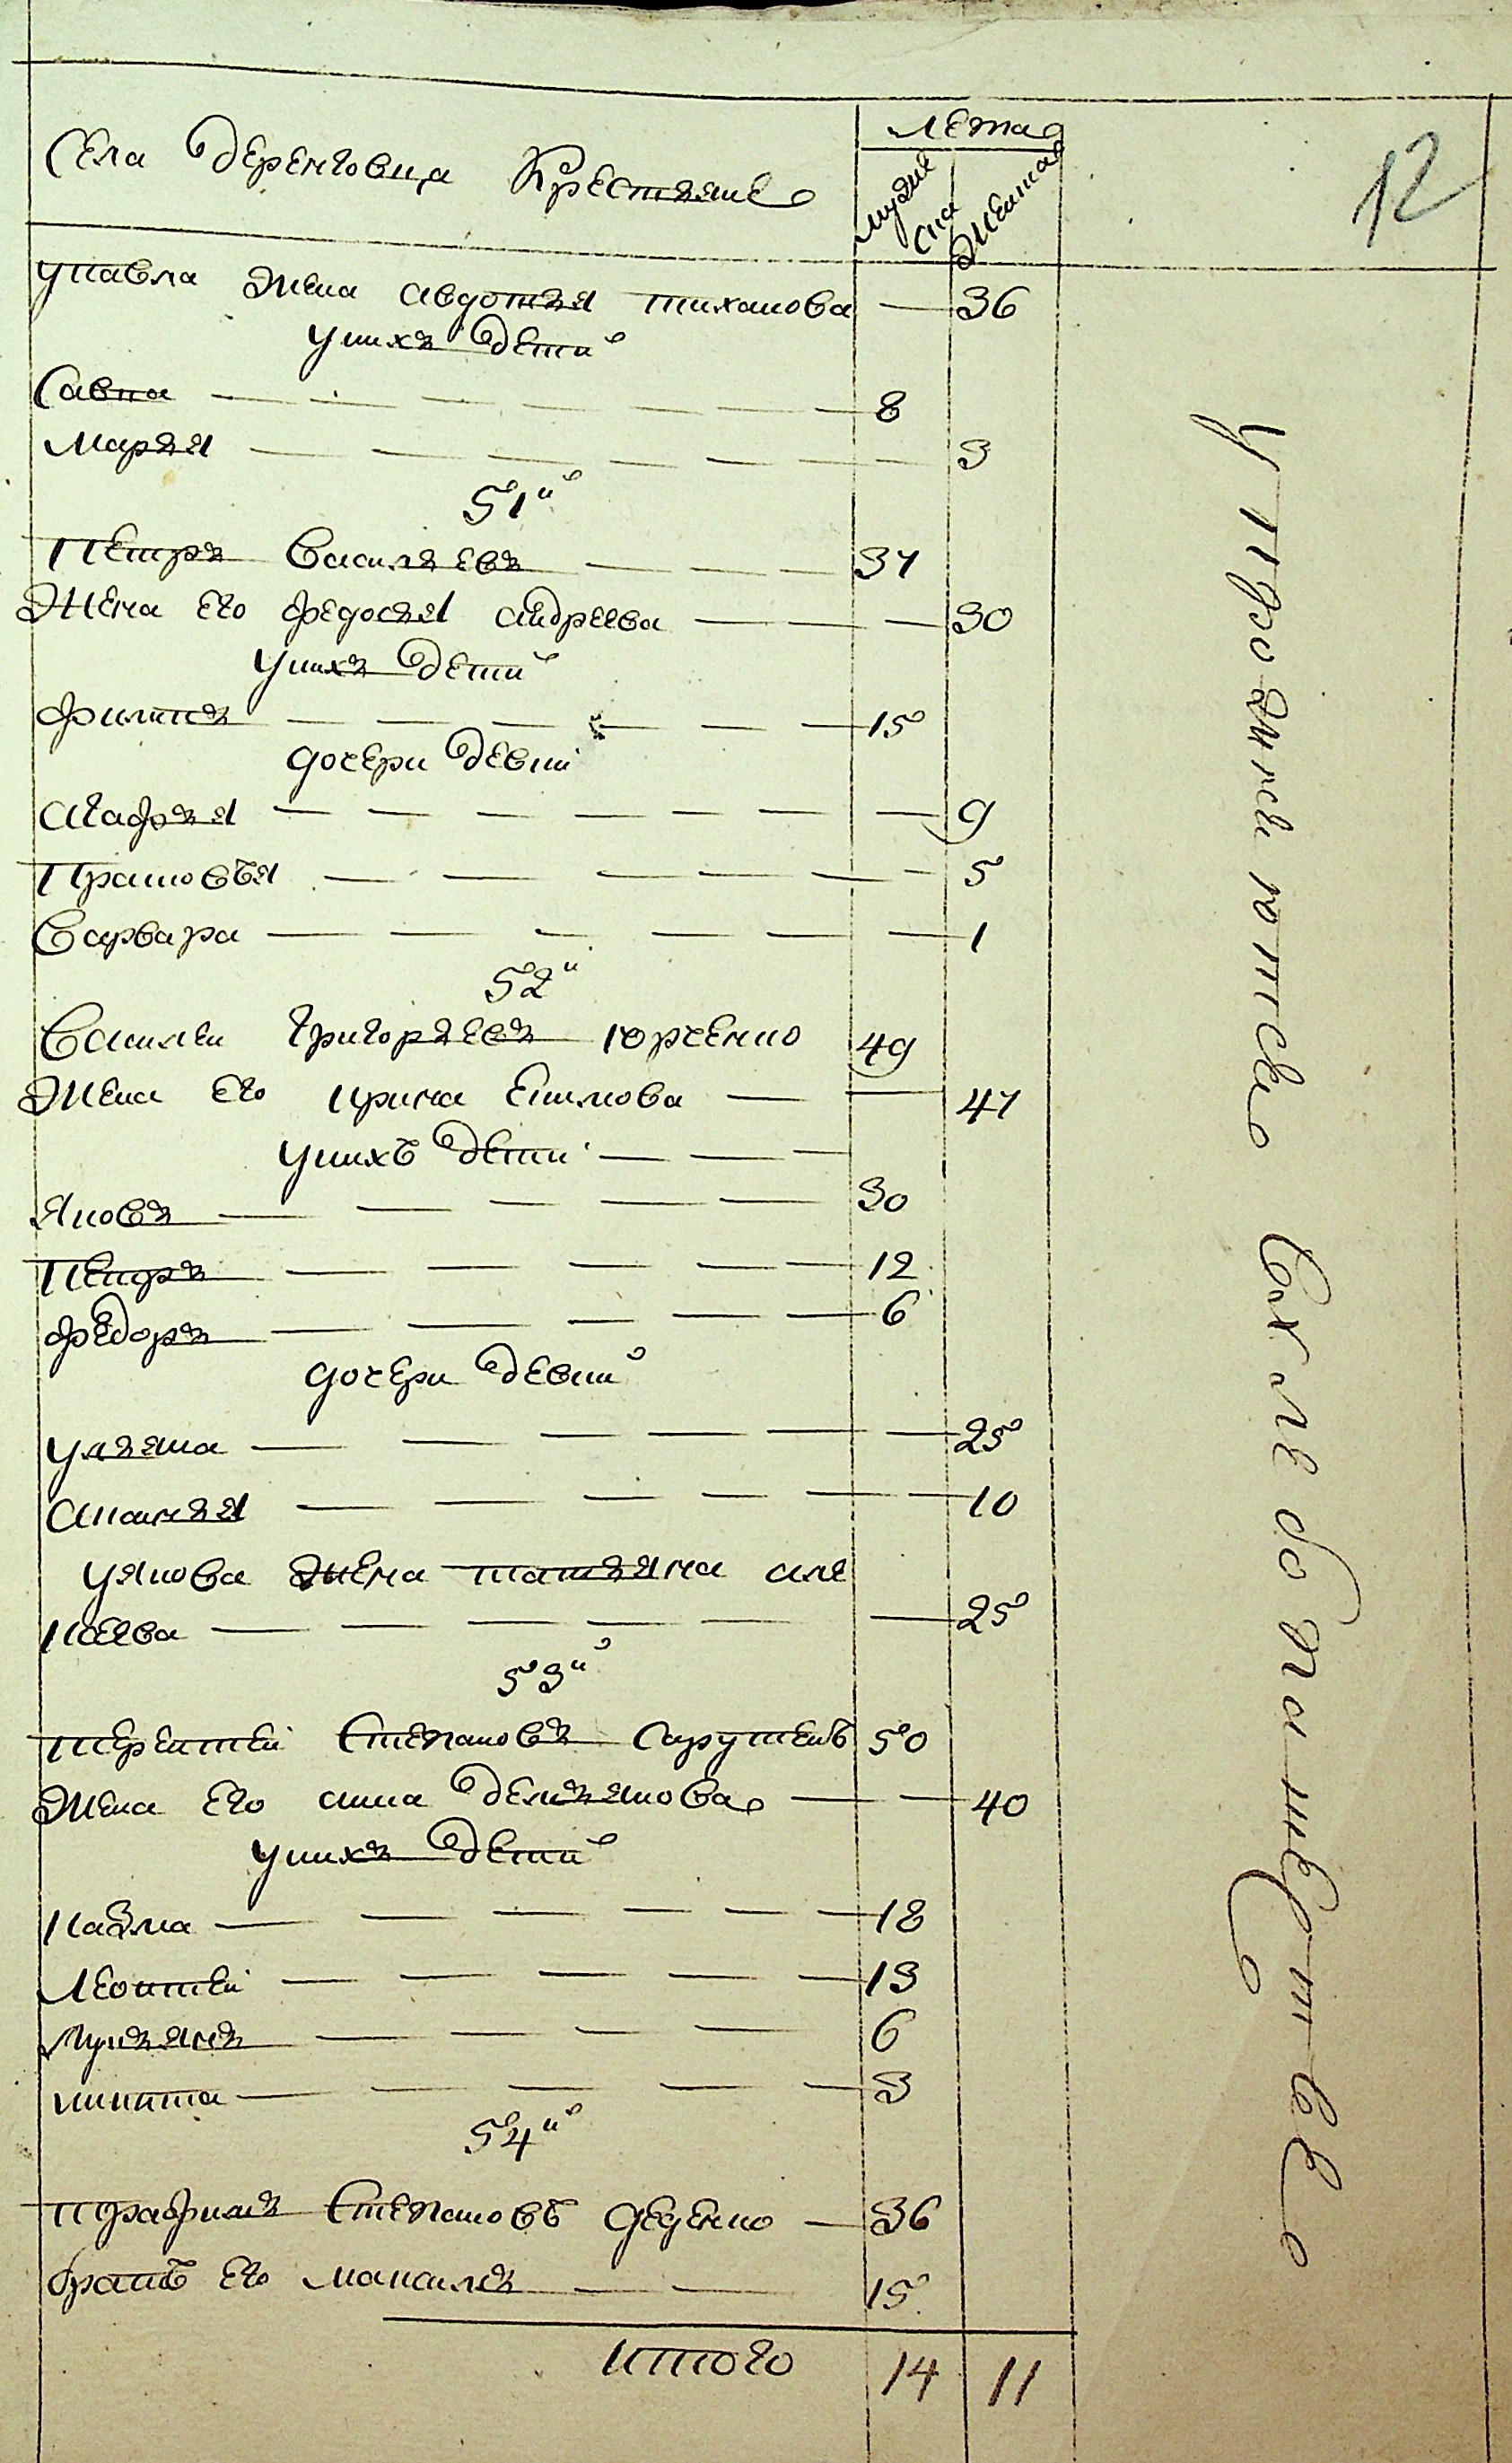 лета
12
Села Деренговца Крестьяне
мужеска
женска
у павла жена авдотья тиханова 36
у нихъ дети
Савка 8
Марья 3
51й
Петръ Васильевъ 37
Жена его федосья андреева 30
у нихъ дети
филипъ 15
дочери девки
Агафья 9
Прасковья 5
Варвара 1
52й
Василеи григорьевъ юрченко 49
Жена его ирина Екимова 47
у нихъ дети
Яковъ 30
Петръ 12
федоръ 6
дочери девки
ульяна 25
анасья 10
у якова жена татьяна але
ксеева 25
53й
терентей Степановъ 50
Жена его анна демьянова 40
у нихъ дети
казма 18
Леонтей 13
лукьянъ 6
никита 3
54й
трофимъ Степановъ деденко 36
братъ его 15
итого 14 11